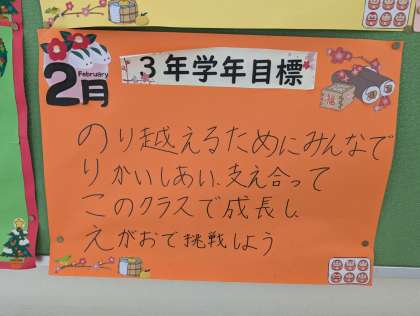 2月
February
3年学年目標
福
のり越えるためにみんなで
りかいしあい、支え合って
このクラスで成長し
えがおで挑戦しよう